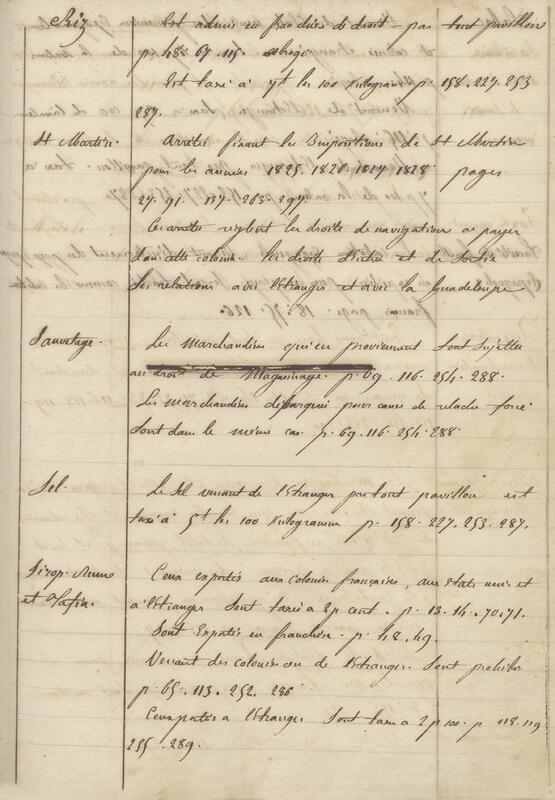 Riz
Est admis en franchise de droit par tout pavillon
p. 48. 67. 115. abrogé
Est taxé à 7f les 100 Kilogram p. 158. 227. 253
287.
St Martin.
arrêtés fixant les Impositions de St Martin
pour les années 1825. 1826. 1827 1828 pages
27. 91. 137. 263. 297
Ces arrêtés règlent les droits de navigation à payer
dans cette colonie. les droits d'entrée et de sortie
Ses relations avec l'Etranger et avec la Guadeloupe
Sauvetage.
Les Marchandises qui en proviennent sont sujettes
au droit de Magasinage. p. 69. 116. 254. 288.
Les marchandises débarquées pour cause de relache forcé
sont dans le même cas p. 69. 116. 254. 288.
Sel.
Le Sel venant de l'Etranger par tout pavillon est
taxé à 5f les 100 Kilogramm p. 158. 227. 253. 287.
Sirop. Rums
et Tafia.
Ceux exportés aux colonies françaises, aux Etats unis et
à l'Etranger sont taxés à 2 p cent. p. 13. 14. 70. 71.
Sont Exportés en franchise. p. 48. 49.
Venant des colonies ou de l'Etranger. Sont prohibés
p. 65. 113. 252. 286
Ceux exportés à l'Etranger sont taxés à 2 p 100. p 118. 119
255. 289.